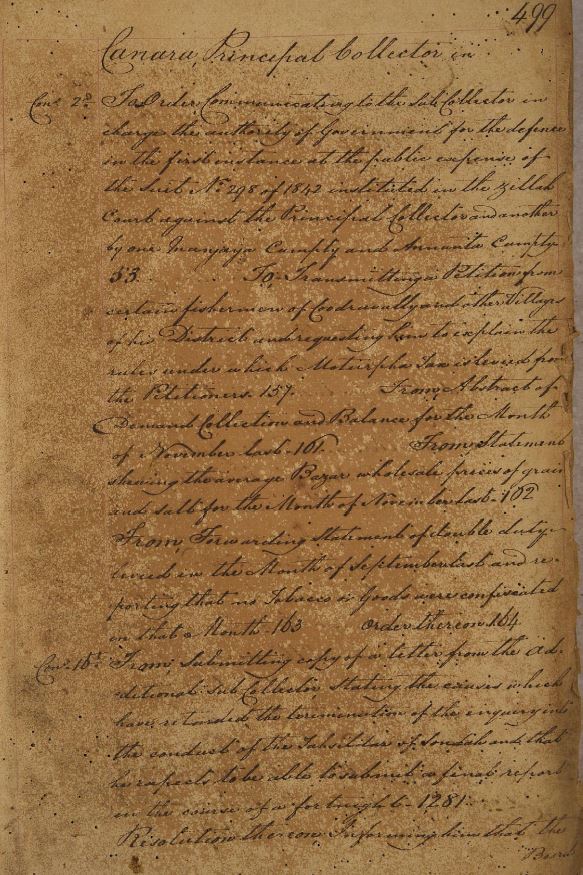 499
Canara Principal Collector in
Cons. 2d To Order Communicating to the Sub Collector in
charge the authority of Government for the defence
in the first instance at the public expense of
the Suit No. 298 of 1842 instituted in the Zillah
Court against the Principal Collector and another
by one Manjaya Campty and Annunta Campty
53. To Transmitting a Petition from
certain fishermen of and other Villages
of his District and requesting him to explain the
rules under which Moturpha Tax is levied from
the Petitioners. 157. From, Abstract of
Demand Collection and Balance for the Month
of November last - 161. From Statement
shewing the average Bazar wholesale prices of grain
and salt for the Month of November last - 162
From, Forwarding Statement of double duty
levied in the Month of September last and re-
porting that no Tobacco or Goods were confiscated
in that Month - 163 Order thereon 164
Cons. 16th From, Submitting copy of a letter from the Ad-
ditional Sub Collector stating the causes which
have retarded the termination of the enquiry into
the conduct of the Tahsildar of Soondah and that
he expects to be able to submit a final report
in the course of a fortnight - 1281.
Resolution thereon Informing him that the
Board